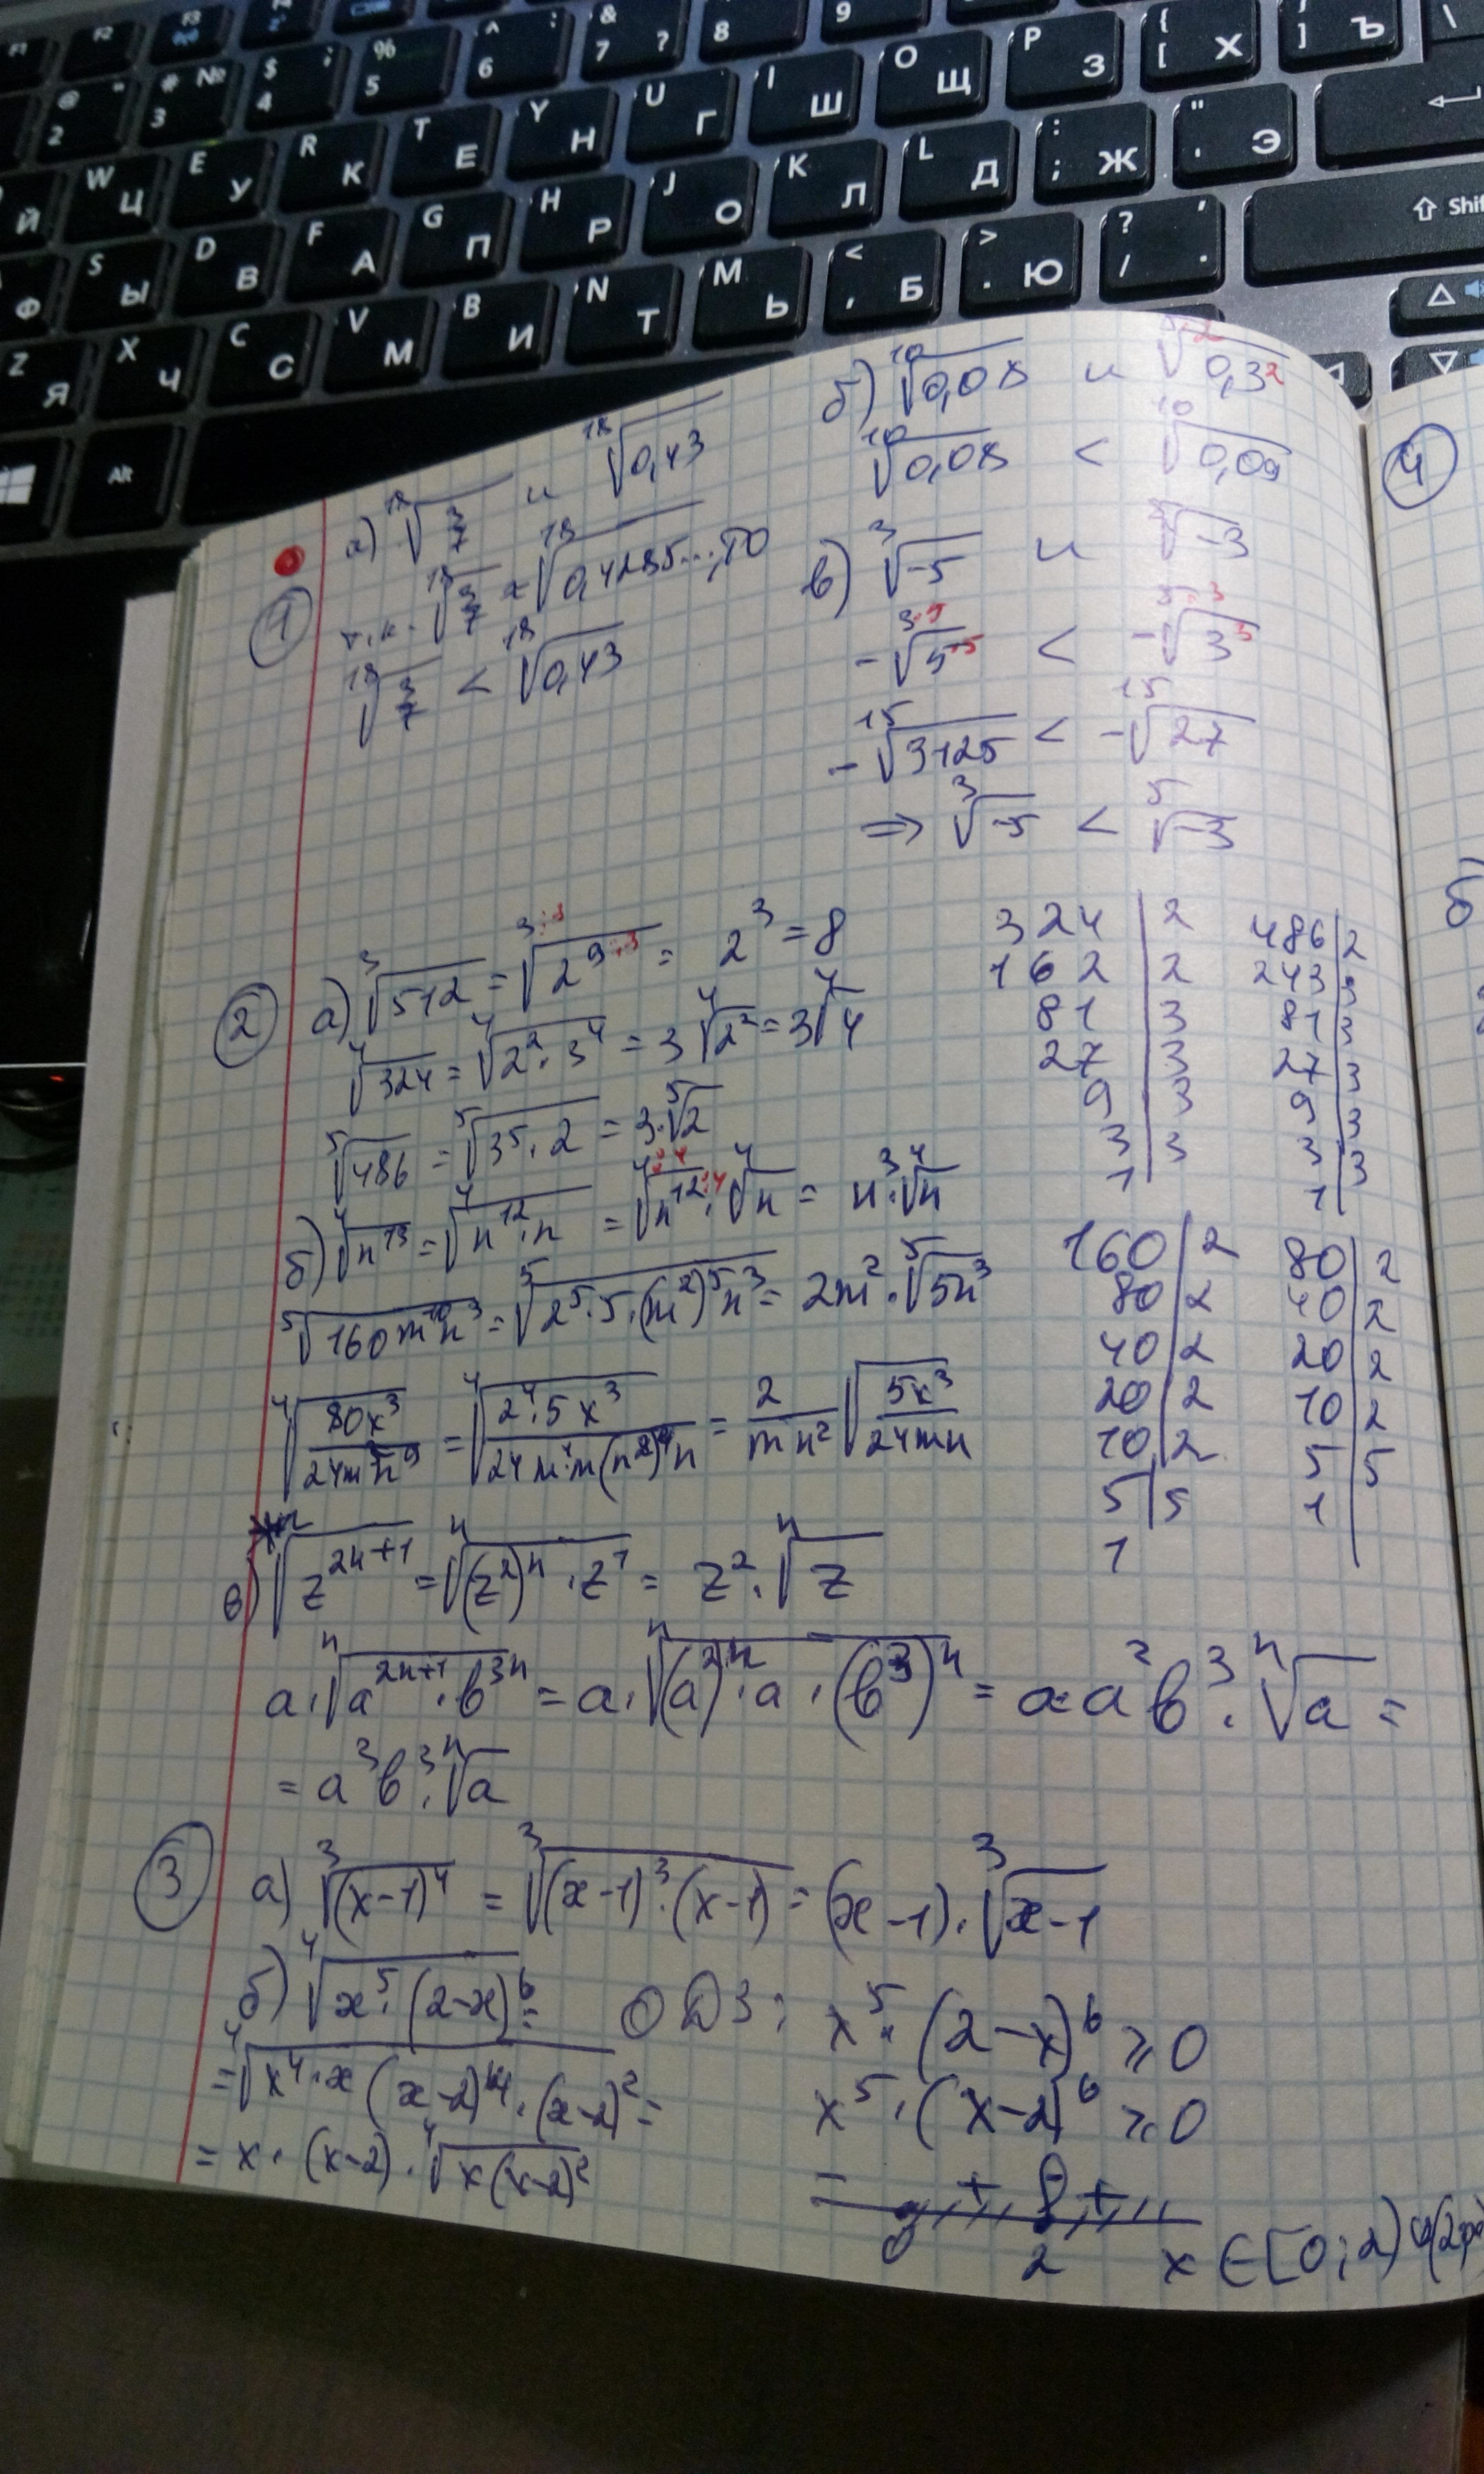 F1 F2 F3
@ " 2 # № 3 $ ; 4 % 5 ^ : 6 & ? 7 8 9
W Ц E У R К T Е Y Н U Г I Ш O Щ P З { [ Х } ] Ъ \
Й
S Ы D В F А G П H Р J О K Л L Д : ; Ж " ' Э
Ф
Z Я X Ч C С V М B И N Т M Ь < , Б > . Ю ? / , . Shift
Alt
1
а) ¹⁸√(3/7) и ¹⁸√0,43
т.к. ¹⁸√(3/7) ≈ ¹⁸√0,4285..., то
¹⁸√(3/7) < ¹⁸√0,43
б) ¹⁰√0,08 и ⁵·²√0,3²
¹⁰√0,08 < ¹⁰√0,09
в) ³√-5 и ⁵√-3
-³·⁵√5⁵ < -⁵·³√3³
-¹⁵√3125 < -¹⁵√27
⇒ ³√-5 < ⁵√-3
2
а) ³√512 = ³:³√2⁹:³ = 2³ = 8
⁴√324 = ⁴√2²·3⁴ = 3 ⁴√2² = 3 ⁴√4
⁵√486 = ⁵√3⁵·2 = 3·⁵√2
б) ⁴√n¹³ = ⁴√n¹²·n = ⁴:⁴√n¹²:⁴ · ⁴√n = n³·⁴√n
⁵√160m¹⁰n³ = ⁵√2⁵·5·(m²)⁵n³ = 2m²·⁵√5n³
⁴√(80x³/24m⁵n⁹) = ⁴√(2⁴·5x³/24m⁴m(n²)⁴n) = 2/mn² √(5x³/24mn)
в) ⁿ√z²ⁿ⁺¹ = ⁿ√(z²)ⁿ·z¹ = z²·ⁿ√z
a·ⁿ√a²ⁿ⁺¹·b³ⁿ = a·ⁿ√(a²)ⁿ·a·(b³)ⁿ = a·a²b³·ⁿ√a =
= a³b³·ⁿ√a
324 | 2
162 | 2
81 | 3
27 | 3
9 | 3
3 | 3
1
486 | 2
243 | 3
81 | 3
27 | 3
9 | 3
3 | 3
1
160 | 2
80 | 2
40 | 2
20 | 2
10 | 2
5 | 5
1
80 | 2
40 | 2
20 | 2
10 | 2
5 | 5
1
3
а) ³√(x-1)⁴ = ³√(x-1)³·(x-1) = (x-1)·³√x-1
б) ⁴√x⁵·(2-x)⁶ =
= ⁴√x⁴·x(x-2)⁴·(x-2)² =
= x·(x-2)·⁴√x(x-2)²
ОДЗ: x⁵·(2-x)⁶ ≥ 0
x⁵·(x-2)⁶ ≥ 0
- + +
0 2 x ∈ [0;2) ∪ (2;
4
б